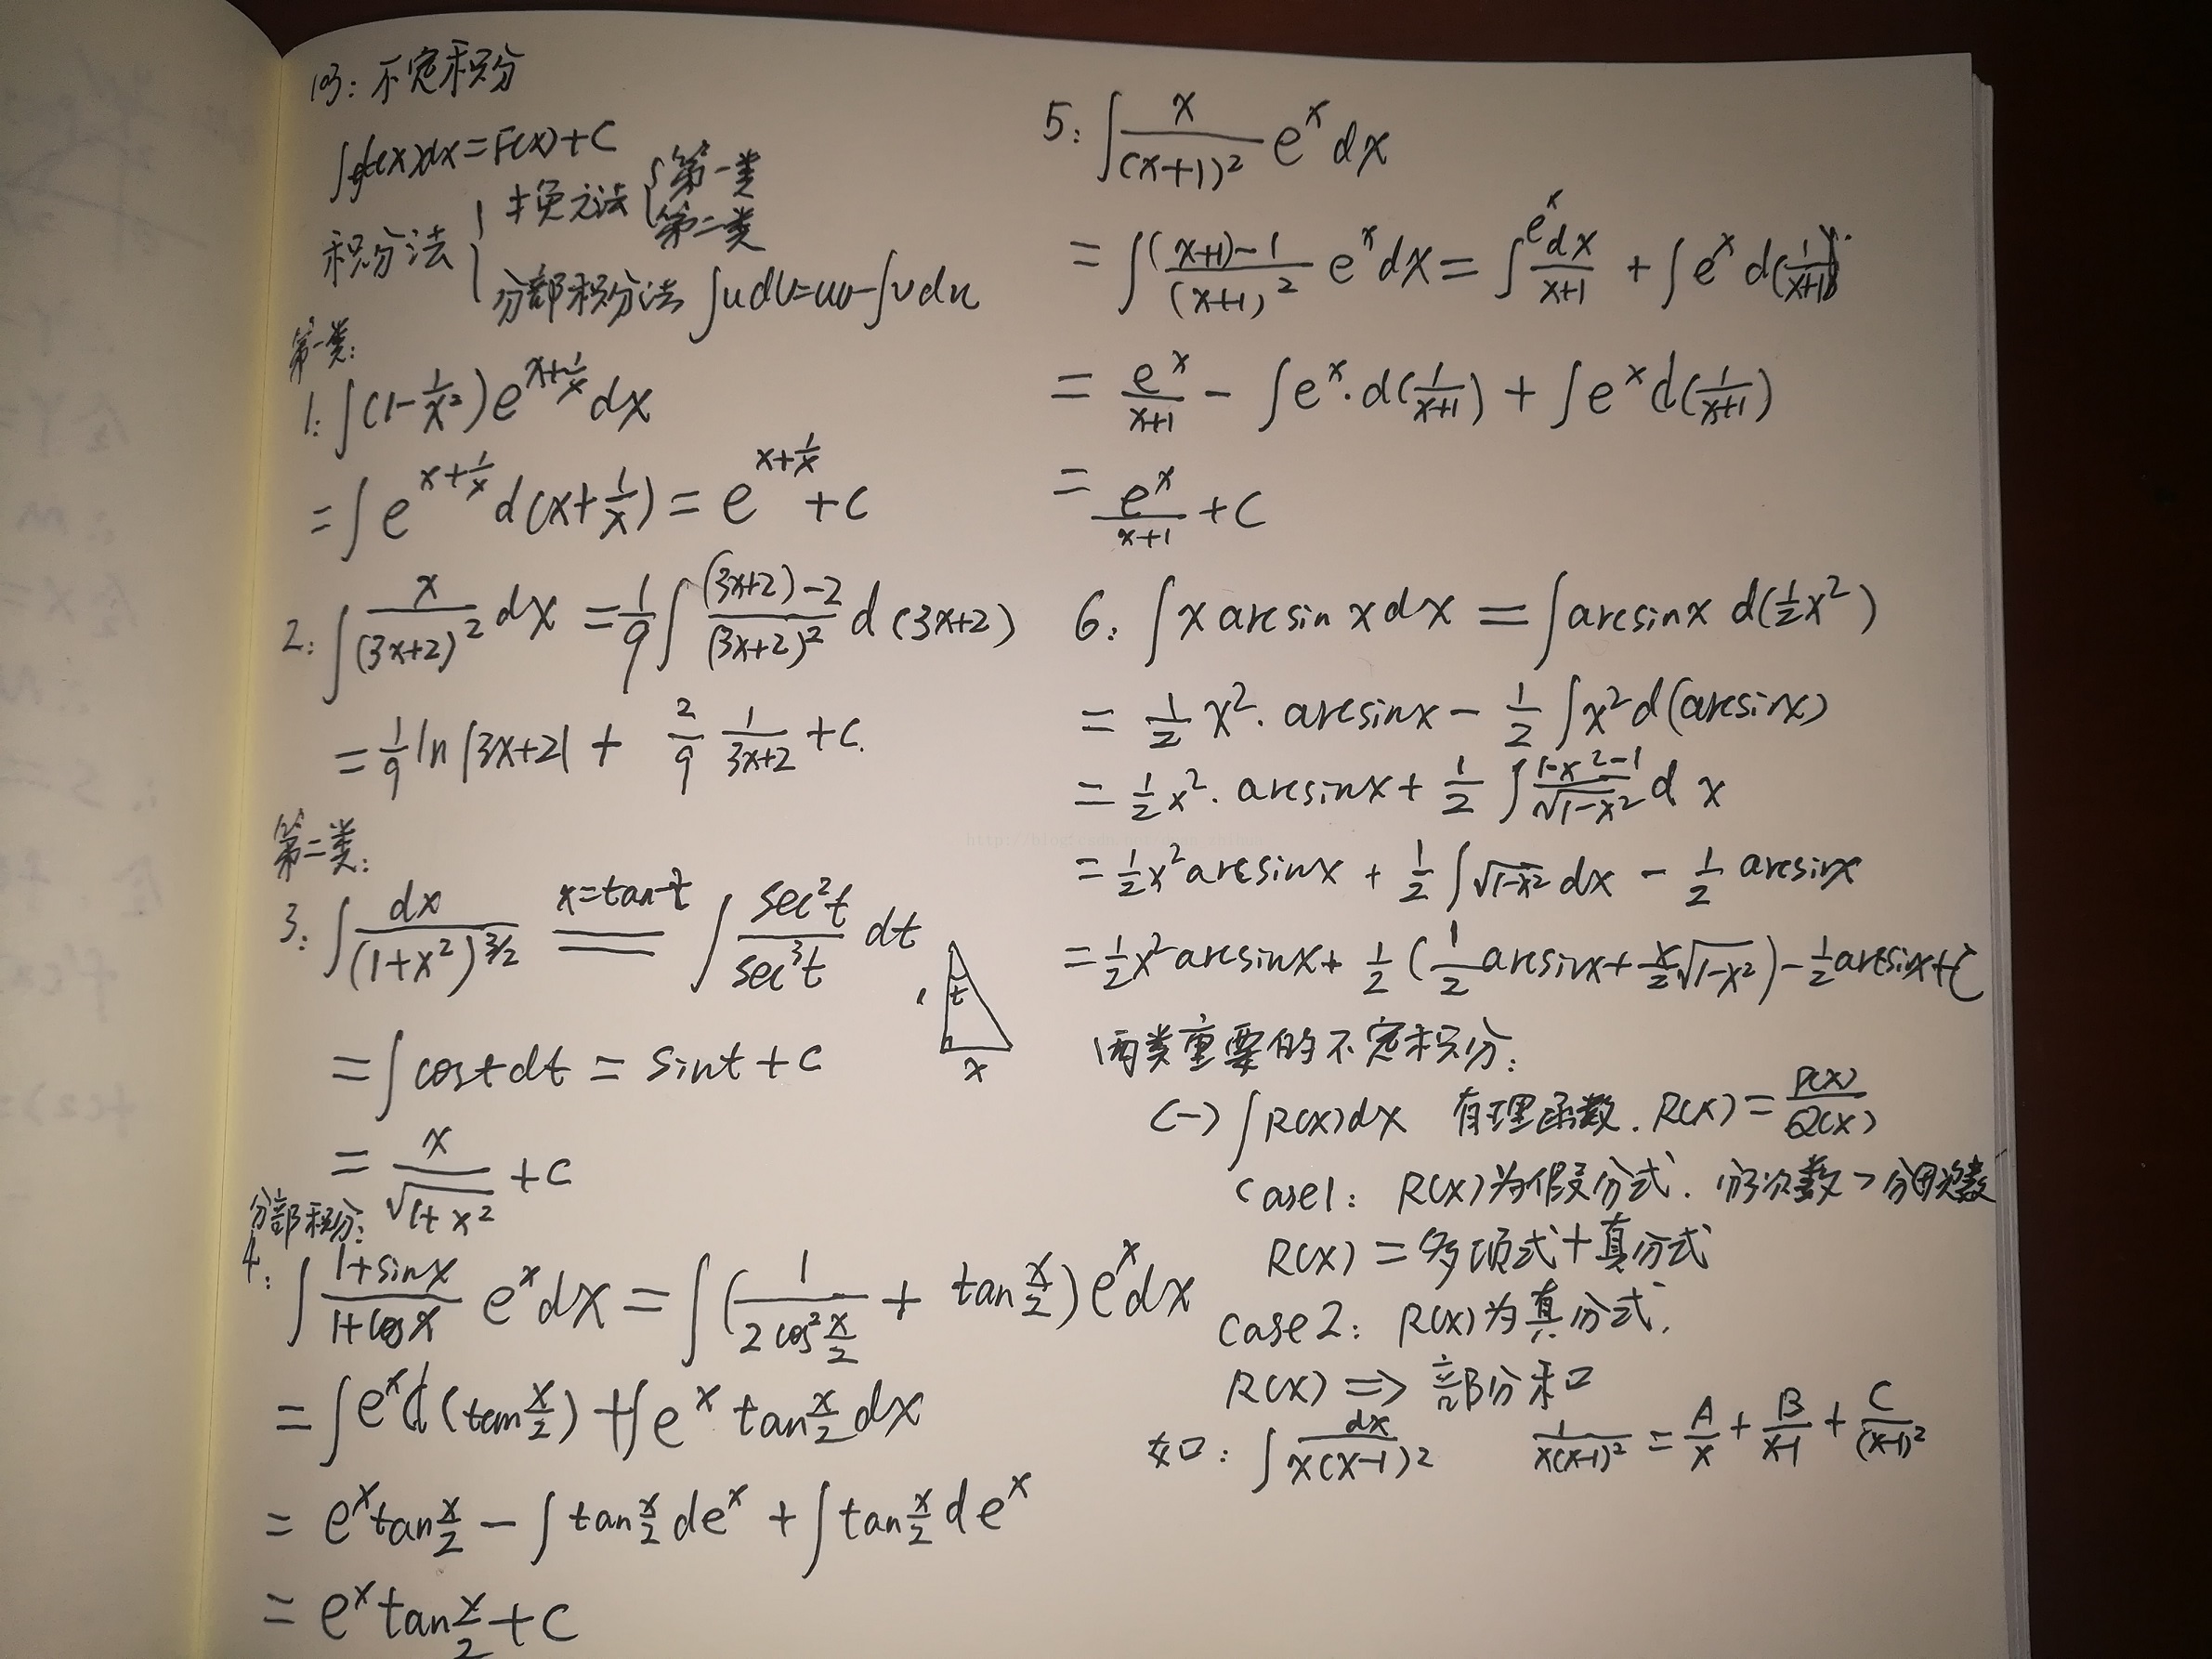 例: 不定积分
∫f(x)dx=F(x)+C
积分法 { 换元法 { 第一类
第二类
分部积分法 ∫udv=uv-∫vdu
第一类:
1: ∫(1-1/x²)e^(x+1/x) dx
=∫e^(x+1/x) d(x+1/x) = e^(x+1/x) +C
2: ∫x/(3x+2)² dx = 1/9 ∫((3x+2)-2)/(3x+2)² d(3x+2)
= 1/9 ln|3x+2| + 2/9 1/(3x+2) +C.
第二类:
3: ∫dx/(1+x²)^(3/2) x=tan t ══ ∫sec²t/sec³t dt
1 t x
=∫cost dt = sint+C
= x/√(1+x²) +C
分部积分:
4: ∫(1+sinx)/(1+cosx) e^x dx = ∫(1/(2cos² x/2) + tan x/2) e^x dx
= ∫e^x d(tan x/2) + ∫e^x tan x/2 dx
= e^x tan x/2 - ∫tan x/2 de^x + ∫tan x/2 de^x
= e^x tan x/2 +C
5: ∫x/(x+1)² e^x dx
= ∫((x+1)-1)/(x+1)² e^x dx = ∫e^x dx/(x+1) + ∫e^x d(1/(x+1))
= e^x/(x+1) - ∫e^x·d(1/(x+1)) + ∫e^x d(1/(x+1))
= e^x/(x+1) +C
6: ∫x arcsin x dx = ∫arcsinx d(½x²)
= ½x²·arcsinx - ½∫x²d(arcsinx)
= ½x²·arcsinx + ½∫(1-x²-1)/√(1-x²) dx
= ½x²arcsinx + ½∫√(1-x²) dx - ½ arcsinx
= ½x²arcsinx + ½(½arcsinx + x/2 √(1-x²)) - ½arcsinx+C
两类重要的不定积分:
(一) ∫R(x)dx 有理函数. R(x)=P(x)/Q(x)
case1: R(x)为假分式. 分子次数>分母次数
R(x) =多项式+真分式
case2: R(x)为真分式.
R(x) ⇒ 部分和
如: ∫dx/(x(x-1)²) 1/(x(x-1)²) = A/x + B/(x-1) + C/(x-1)²